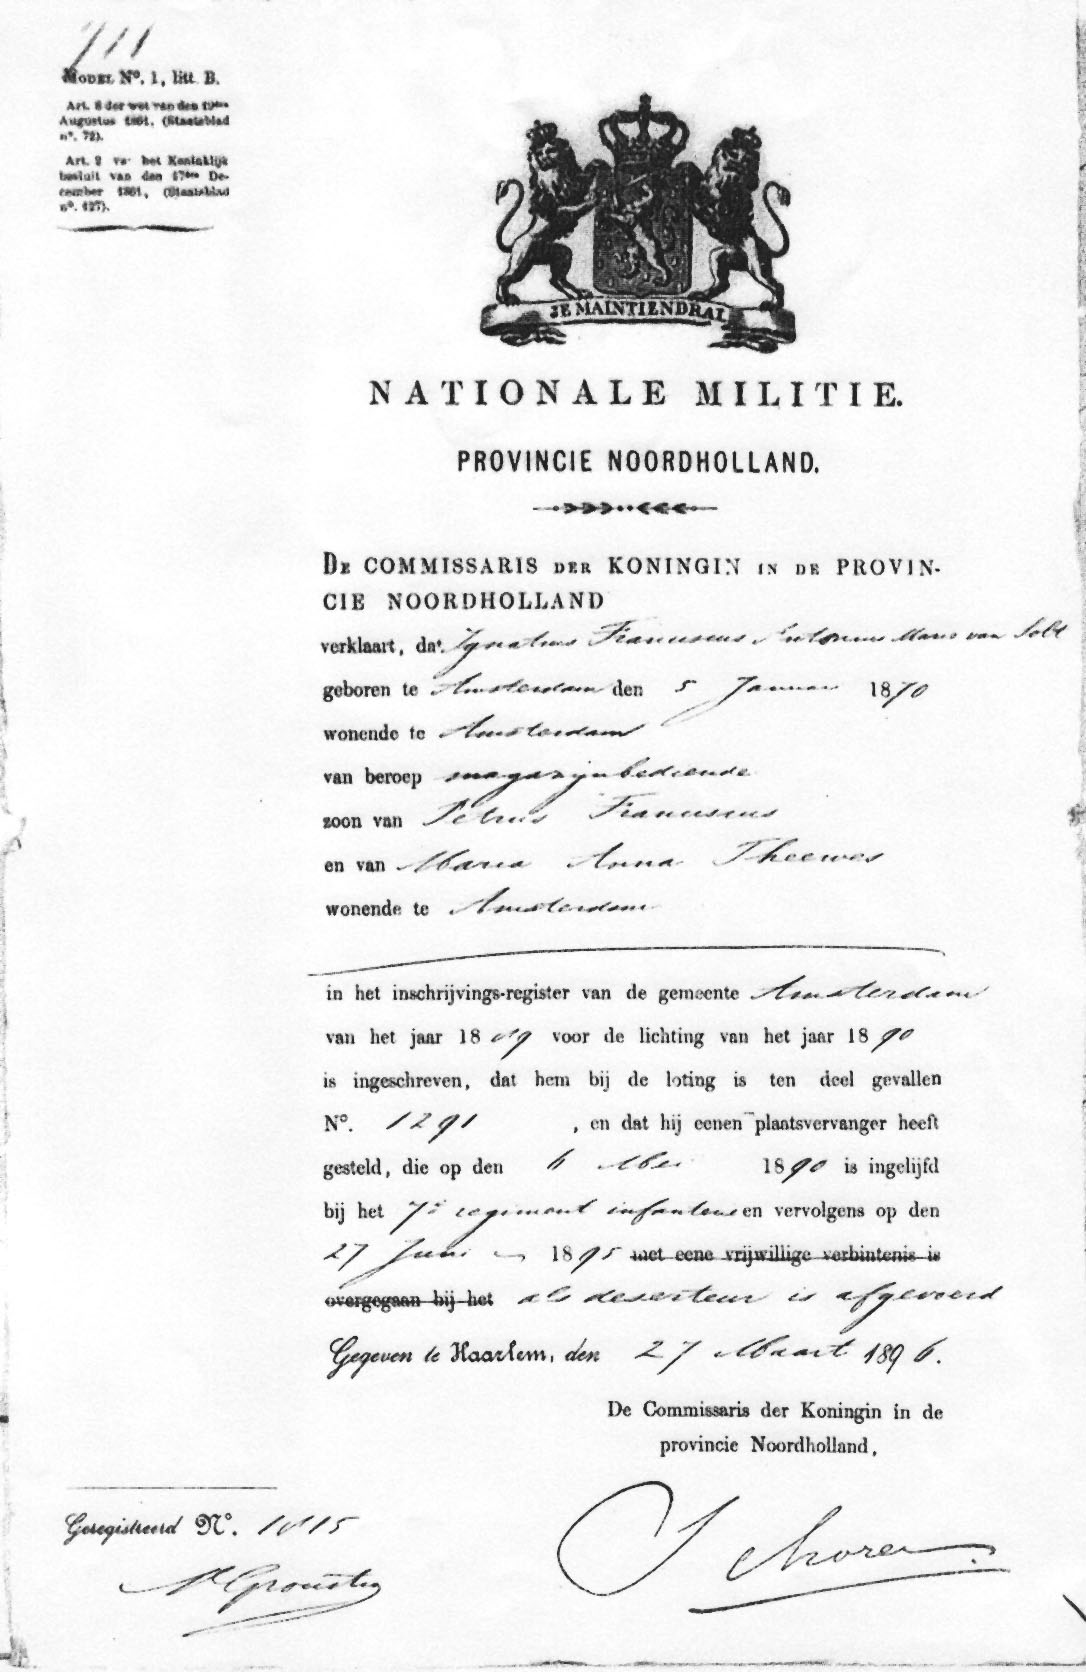 711
MODEL Nº. 1, litt. B.
Art. 8 der wet van den 19den
Augustus 1861, (Staatsblad
nº. 72).
Art. 2 va- het Koninklijk
besluit van den 17den De-
cember 1861, (Staatsblad
nº. 127).
JE MAINTIENDRAI
NATIONALE MILITIE.
PROVINCIE NOORDHOLLAND.
DE COMMISSARIS DER KONINGIN IN DE PROVIN-
CIE NOORDHOLLAND
verklaart, dat Ignatius Franciscus Antonius Maria van
geboren te Amsterdam den 5 Januari 1870
wonende te Amsterdam
van beroep magazijnbediende
zoon van Petrus Franciscus
en van Maria Anna Theewes
wonende te Amsterdam
in het inschrijvings-register van de gemeente Amsterdam
van het jaar 1889 voor de lichting van het jaar 1890
is ingeschreven, dat hem bij de loting is ten deel gevallen
Nº. 1291 , en dat hij eenen plaatsvervanger heeft
gesteld, die op den 6 Mei 1890 is ingelijfd
bij het 7e regiment infanterie en vervolgens op den
27 Juni 1895 met eene vrijwillige verbintenis is
overgegaan bij het als deserteur is afgevoerd
Gegeven te Haarlem, den 27 Maart 1896.
De Commissaris der Koningin in de
provincie Noordholland,
Geregistreerd Nº. 1815
Schorer